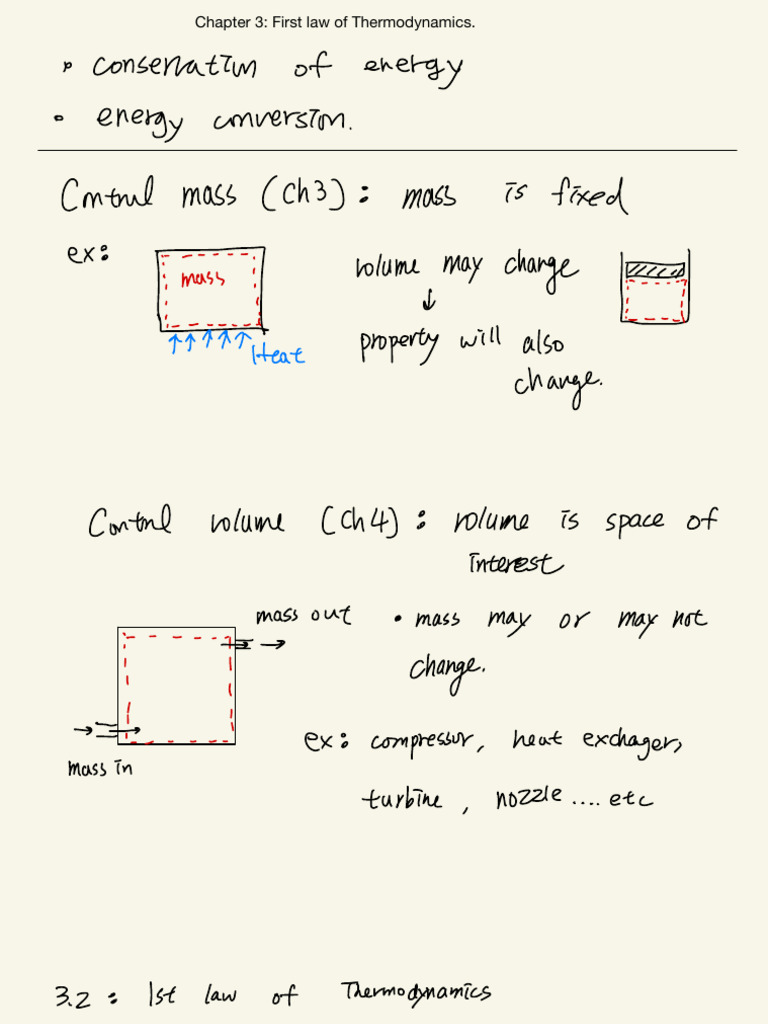 Chapter 3: First law of Thermodynamics.
• conservation of energy
• energy conversion.
Control mass (Ch3): mass is fixed
ex:
mass
Heat
volume may change
↓
property will also
change.
Control volume (Ch4): volume is space of
interest
mass out
• mass may or may not
change.
mass in
ex: compressor, heat exchagers,
turbine, nozzle .... etc
3.2: 1st law of Thermodynamics